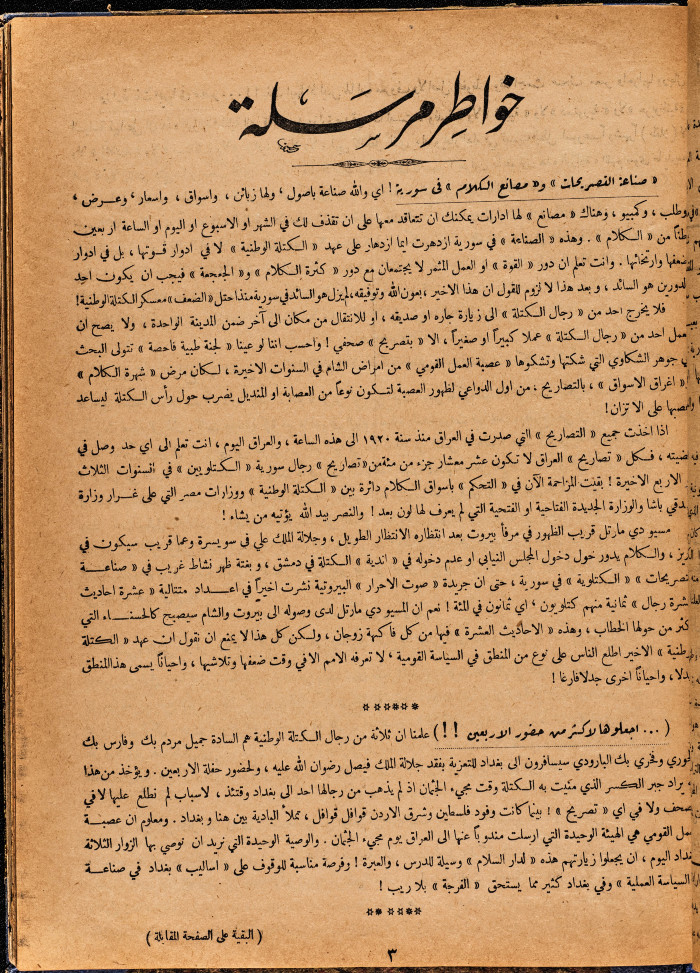 خواطر مرسلة
« صناعة التصريحات » و« مصانع الكلام » في سورية ! اي والله صناعة باصول ، ولها زبائن ، واسواق ، واسعار ، وعرض ،
وطلب ، وكمبيو ، وهناك « مصانع » لها ادارات يمكنك ان تتعاقد معها على ان تقذف لك في الشهر او الاسبوع او اليوم او الساعة اربعين
طناً من « الكلام » . وهذه « الصناعة » في سورية ازدهرت ايما ازدهار على عهد « الكتلة الوطنية » لا في ادوار قوتها ، بل في ادوار
ضعفها وارتخائها . وانت تعلم ان دور « القوة » او العمل المثمر لا يجتمعان مع دور « كثرة الكلام » و« الجعجعة » فيجب ان يكون احد
الدورين هو السائد ، وبعد هذا لا لزوم للقول ان هذا الاخير ، بعون الله وتوفيقه ، لم يزل هو السائد في سورية منذ احتل « الضعف » معسكر الكتلة الوطنية !
فلا يخرج احد من « رجال الكتلة » الى زيارة جاره او صديقه ، او للانتقال من مكان الى آخر ضمن المدينة الواحدة ، ولا يصح ان
يعمل احد من « رجال الكتلة » عملا كبيراً او صغيراً ، الا « بتصريح » صحفي ! واحسب اننا لو عينا « لجنة طبية فاحصة » تتولى البحث
في جوهر الشكاوي التي شكتها وتشكوها « عصبة العمل القومي » من امراض الشام في السنوات الاخيرة ، لكان مرض « شهرة الكلام »
« اغراق الاسواق » ، بالتصاريح ، من اول الدواعي لظهور العصبة لتكون نوعاً من العصابة او المنديل يضرب حول رأس الكتلة ليساعد
اعصبها على الاتزان !
اذا اخذت جميع « التصاريح » التي صدرت في العراق منذ سنة ١٩٢٠ الى هذه الساعة ، والعراق اليوم ، انت تعلم الى اي حد وصل في
قضيته ، فكل « تصاريح » العراق لا تكون عشر معشار جزء من مئة من « تصاريح » رجال سورية « الكتلويين » في السنوات الثلاث
الاربع الاخيرة ! بقيت المزاحمة الآن في « التحكم » باسواق الكلام دائرة بين « الكتلة الوطنية » ووزارات مصر التي على غرار وزارة
صدقي باشا والوزارة الجديدة الفتاحية او الفتحية التي لم يعرف لها لون بعد ! والنصر بيد الله يؤتيه من يشاء !
مسيو دي مارتل قريب الظهور في مرفأ بيروت بعد انتظاره الانتظار الطويل ، وجلالة الملك علي في سويسرة وعما قريب سيكون في
باريز ، والكلام يدور حول دخول المجلس النيابي او عدم دخوله في « اندية » الكتلة في دمشق ، وبغتة ظهر نشاط غريب في « صناعة
التصريحات » « الكتلوية » في سورية ، حتى ان جريدة « صوت الاحرار » البيروتية نشرت اخيراً في اعداد متتالية « عشرة احاديث
لعشرة رجال » ثمانية منهم كتلويون ، اي ثمانون في المئة ! نعم ان المسيو دي مارتل لدى وصوله الى بيروت والشام سيصبح كالحسناء التي
كثر من حولها الخطاب ، وهذه « الاحاديث العشرة » فيها من كل فاكهة زوجان ، ولكن كل هذا لا يمنع ان نقول ان عهد « الكتلة
الوطنية » الاخير اطلع الناس على نوع من المنطق في السياسة القومية ، لا تعرفه الامم الا في وقت ضعفها وتلاشيها ، واحياناً يسمى هذا المنطق
جدلا ، واحياناً اخرى جدلا فارغا !
( ... اجعلوها لاكثر من حضور الاربعين !! ) علمنا ان ثلاثة من رجال الكتلة الوطنية هم السادة جميل مردم بك وفارس بك
الخوري وفخري بك البارودي سيسافرون الى بغداد للتعزية بفقد جلالة الملك فيصل رضوان الله عليه ، ولحضور حفلة الاربعين . ويؤخذ من هذا
انه يراد جبر الكسر الذي منيت به الكتلة وقت مجيء الجثمان اذ لم يذهب من رجالها احد الى بغداد وقتئذ ، لاسباب لم نطلع عليها لا في
الصحف ولا في اي « تصريح » ! بينما كانت وفود فلسطين وشرق الاردن قوافل قوافل ، تملأ البادية بين هنا وبغداد . ومعلوم ان عصبة
العمل القومي هي الهيئة الوحيدة التي ارسلت مندوباً عنها الى العراق يوم مجيء الجثمان . والوصية الوحيدة التي نريد ان نوصي بها الزوار الثلاثة
لبغداد اليوم ، ان يجعلوا زيارتهم هذه « لدار السلام » وسيلة للدرس ، والعبرة ! وفرصة مناسبة للوقوف على « اساليب » بغداد في صناعة
« السياسة العملية » وفي بغداد كثير مما يستحق « الفرجة » بلا ريب !
( البقية على الصفحة المقابلة )
٣